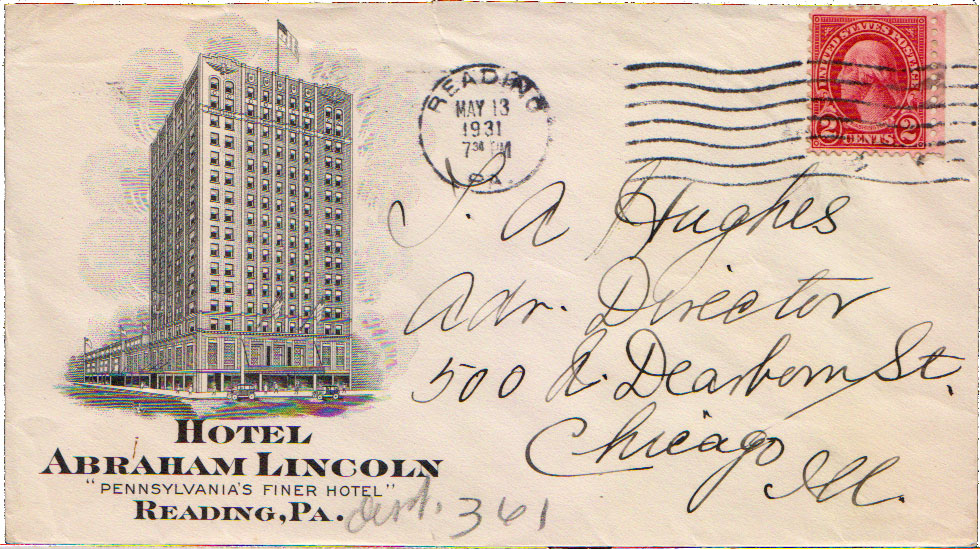 READING
MAY 13
1931
7 30 PM
PA.
UNITED STATES POSTAGE
2 CENTS 2
J. A Hughes
Adv. Director
500 N. Dearborn St.
Chicago
Ill.
HOTEL
ABRAHAM LINCOLN
"PENNSYLVANIA'S FINER HOTEL"
READING, PA.
361